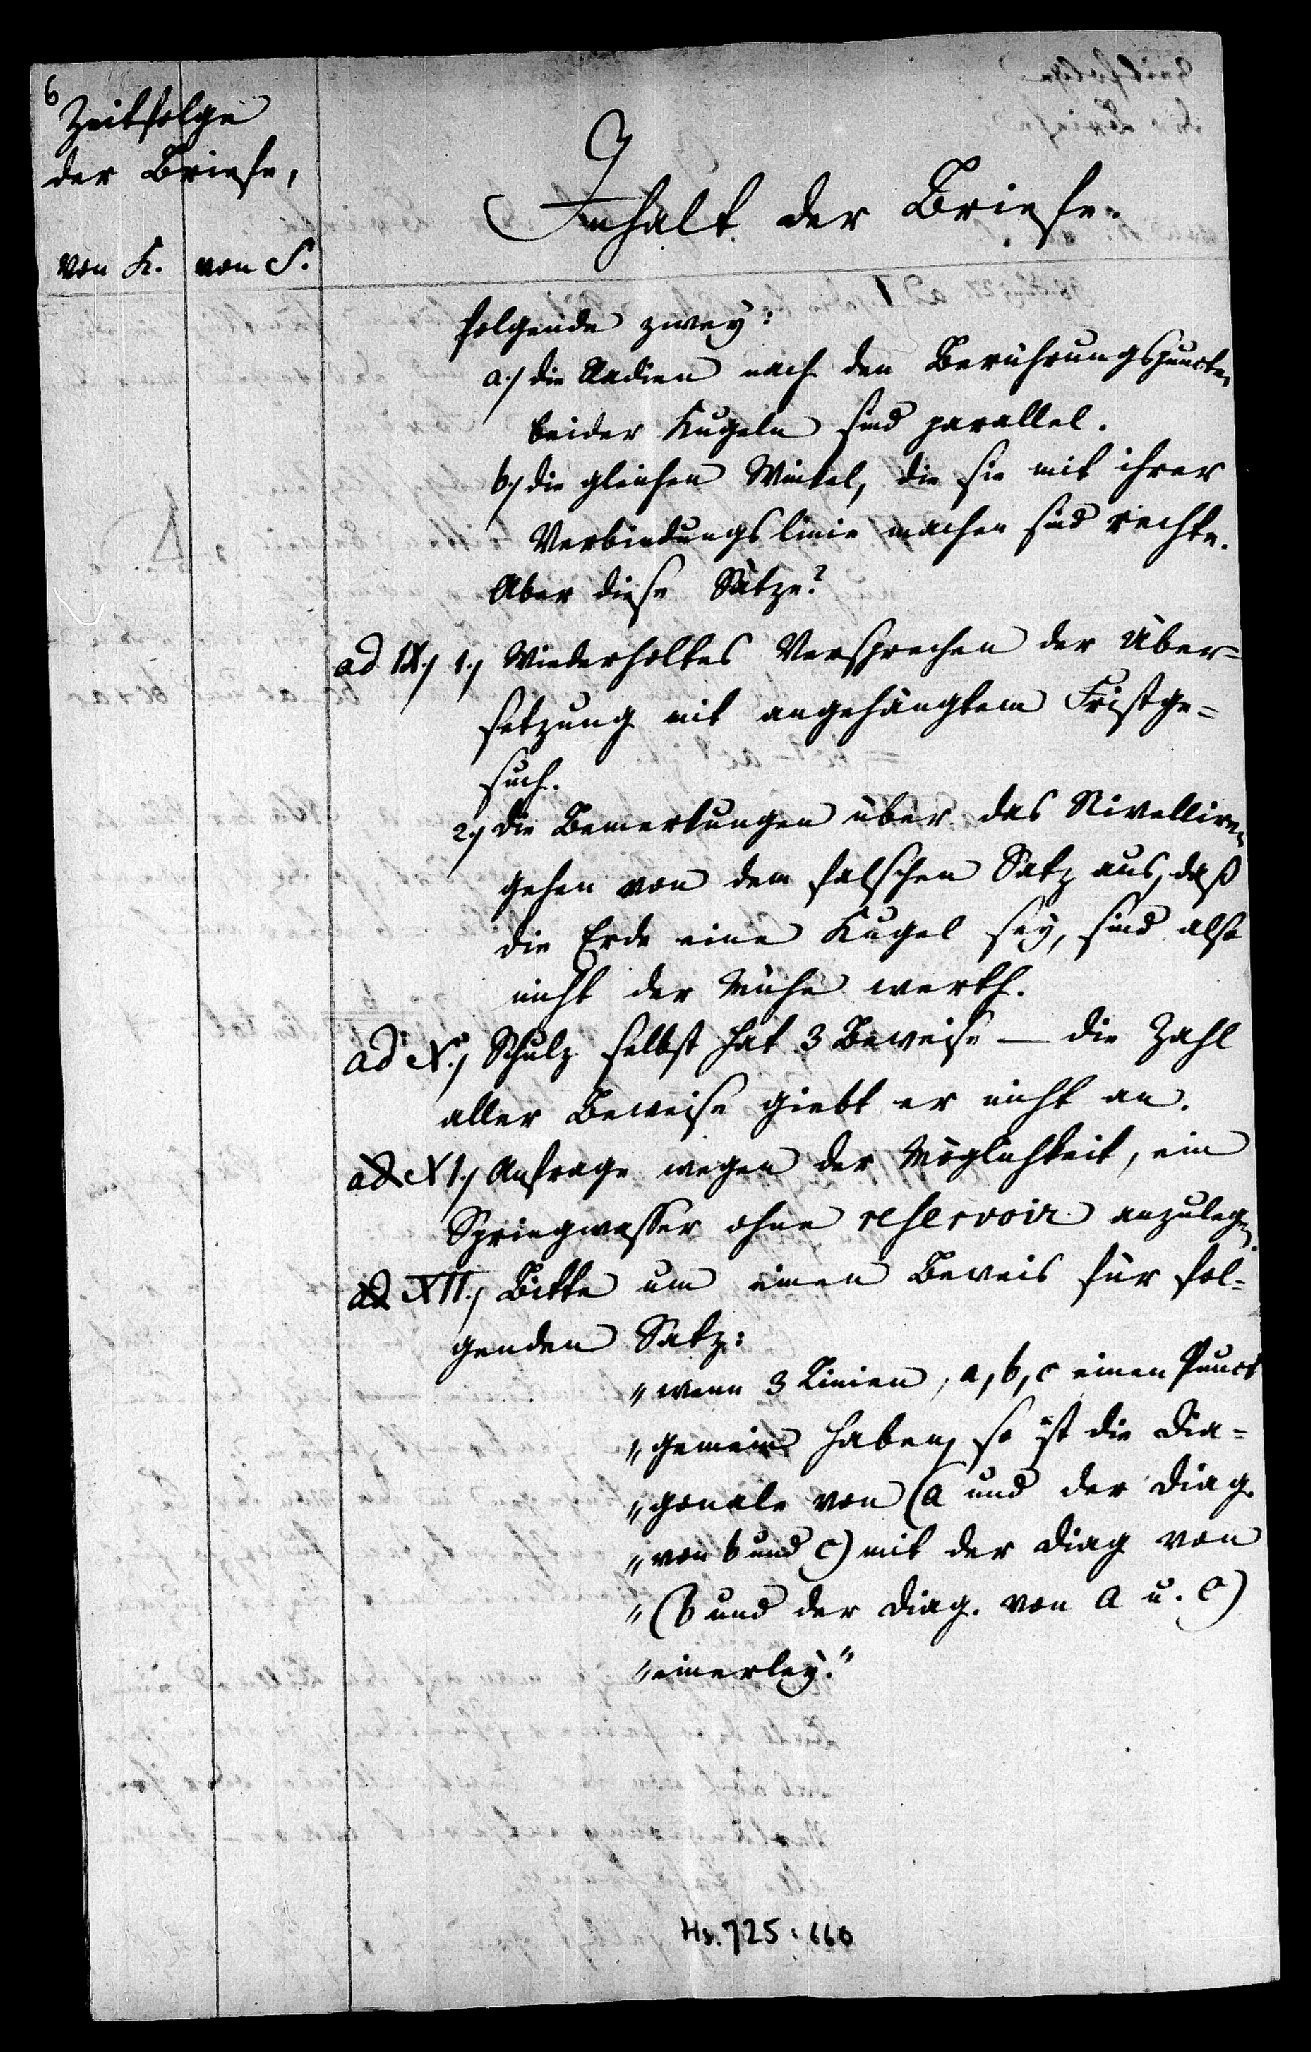 6
Zeitfolge
der Briefe,
von K. von S.
Inhalt der Briefe.
folgende zwey:
a.) die Radien nach den Berührungspuncten
beider Kugeln sind parallel.
b.) die gleichen Winkel, die sie mit ihrer
Verbindungslinie machen sind rechte.
Aber diese Sätze?
ad IX.) 1.) Wiederholtes Versprechen der Über=
setzung mit angehängtem Fristge=
such.
2.) die Bemerkungen über das Nivelliren
gehen von dem falschen Satz aus, daß
die Erde eine Kugel sey, sind also
nicht der Mühe werth.
ad X.) Schulz selbst hat 3 Beweise — die Zahl
aller Beweise giebt er nicht an.
ad XI.) Anfrage wegen der Möglichkeit, ein
Springwasser ohne reservoir anzulegen.
ad XII.) Bitte um einen Beweis für fol=
genden Satz:
„wenn 3 Linien, a, b, c einen Punct
„gemein haben, so ist die Dia=
„gonale von (a und der Diag.
„von b und c) mit der Diag von
„(b und der Diag. von a u. c)
„einerley."
Hs. 725:660